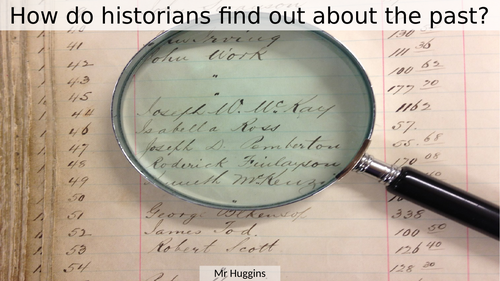 How do historians find out about the past?
41 Irving 130
42 John Work 111 36
43 " 100 62
45 177 70
44 Joseph W. McKay 1162
46 Isabella Ross 57.
47 Joseph D. Pemberton 68
48 Roderick Finlayson 170 08
49 Kenneth McKenzie 40
50
51 George 338
52 James Tod 100 50
53 Robert Scott 126 40
54 128 30
Mr Huggins